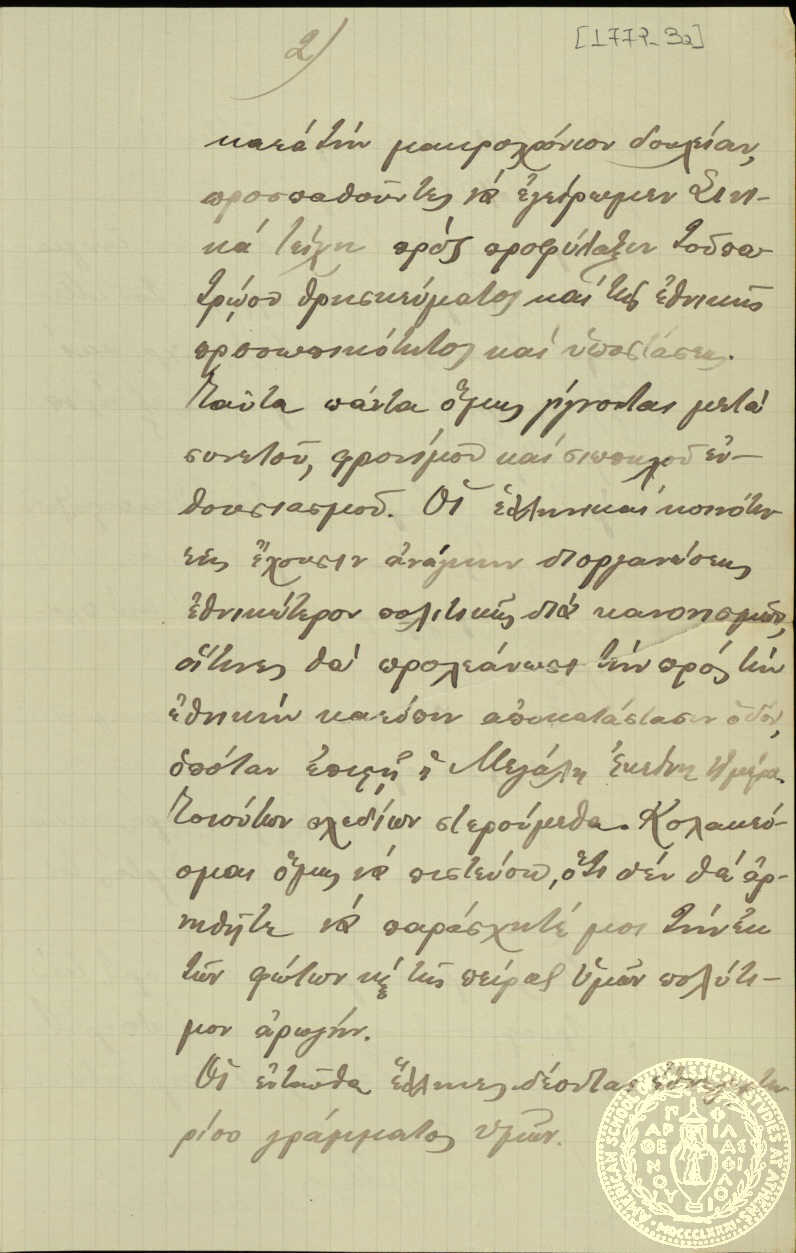 2)
[1779-3a]
κατὰ τὴν μακροχρόνιον δουλείαν,
προσπαθοῦντες νὰ ἐγείρωμεν Σινι-
κὰ τείχη πρὸς προφύλαξιν τοῦ πα-
τρῴου θρησκεύματος καὶ τῆς ἐθνικῆς
προσωπικότητος καὶ ὑποστάσεως.
Ταῦτα πάντα ὅμως γίγνονται μετὰ
συνετοῦ, φρονίμου καὶ σιωπηλοῦ ἐν-
θουσιασμοῦ. Αἱ ἑλληνικαὶ κοινότη-
τες ἔχουσιν ἀνάγκην διοργανώσεως
ἐθνικώτερον πολιτικῆς διὰ κανονισμῶν,
οἵτινες θὰ προλεάνωσι τὴν πρὸς τὴν
ἐθνικὴν κατόπιν ἀποκατάστασιν ὁδόν,
ὁπόταν ἐπιστῇ ἡ Μεγάλη Ἐκείνη Ἡμέρα.
Τοιούτων σχεδίων στερούμεθα. Κολακεύ-
ομαι ὅμως νὰ πιστεύσω, ὅτι δὲν θὰ ἀρ-
νηθῆτε νὰ παράσχητέ μοι τὴν ἐκ
τῶν φώτων κὲ τῆς πείρας Ὑμῶν πολύτι-
μον ἀρωγήν.
Οἱ ἐνταῦθα Ἕλληνες δέονται
ρίου γράμματος Ὑμῶν.
AMERICAN SCHOOL OF CLASSICAL STUDIES AT ATHENS
MDCCCLXXXI
ΠΑΡΘΕΝΟΥ ΦΙΛΑΣ ΦΙΛΟΙ